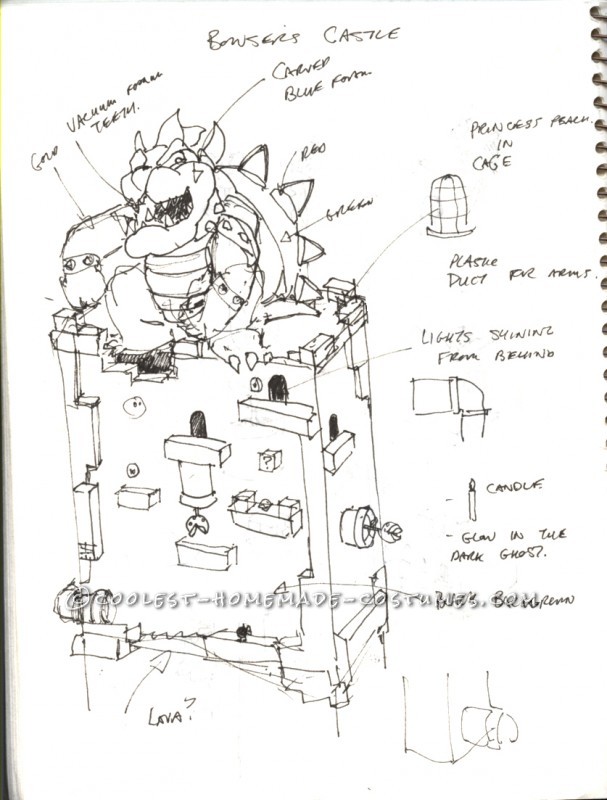 BOWSER'S CASTLE
CARVED
BLUE FOAM
VACUUM FORMED
TEETH.
GOLD
RED
GREEN
PRINCESS PEACH
IN
CAGE
PLASTIC
DUCT FOR ARMS.
LIGHTS SHINING
FROM BEHIND
?
- CANDLE
- GLOW IN THE
DARK GHOST.
©COOLEST-HOMEMADE-COSTUMES.COM
LAVA?